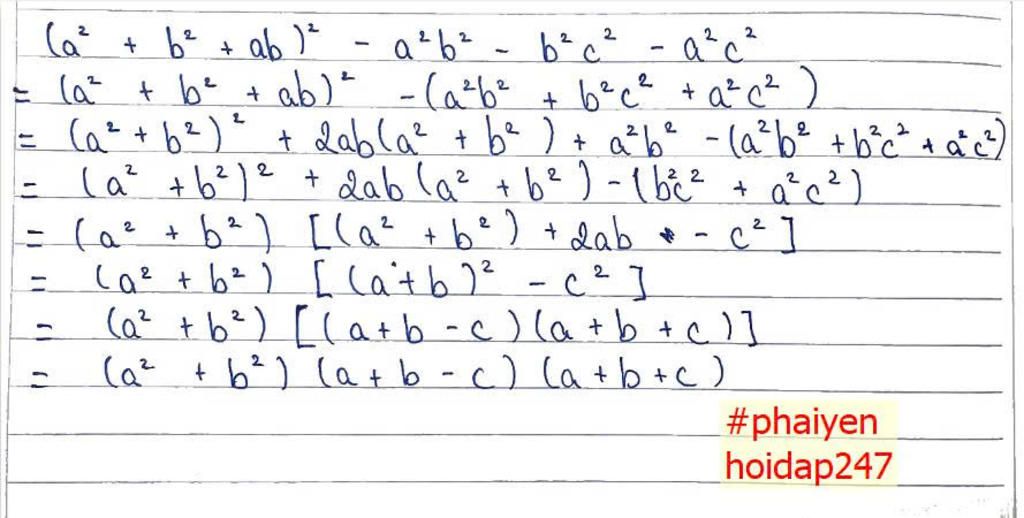 (a² + b² + ab)² - a²b² - b²c² - a²c²
= (a² + b² + ab)² - (a²b² + b²c² + a²c²)
= (a² + b²)² + 2ab(a² + b²) + a²b² - (a²b² + b²c² + a²c²)
= (a² + b²)² + 2ab(a² + b²) - (b²c² + a²c²)
= (a² + b²) [(a² + b²) + 2ab - c²]
= (a² + b²) [(a + b)² - c²]
= (a² + b²) [(a + b - c)(a + b + c)]
= (a² + b²) (a + b - c) (a + b + c)
#phaiyen
hoidap247